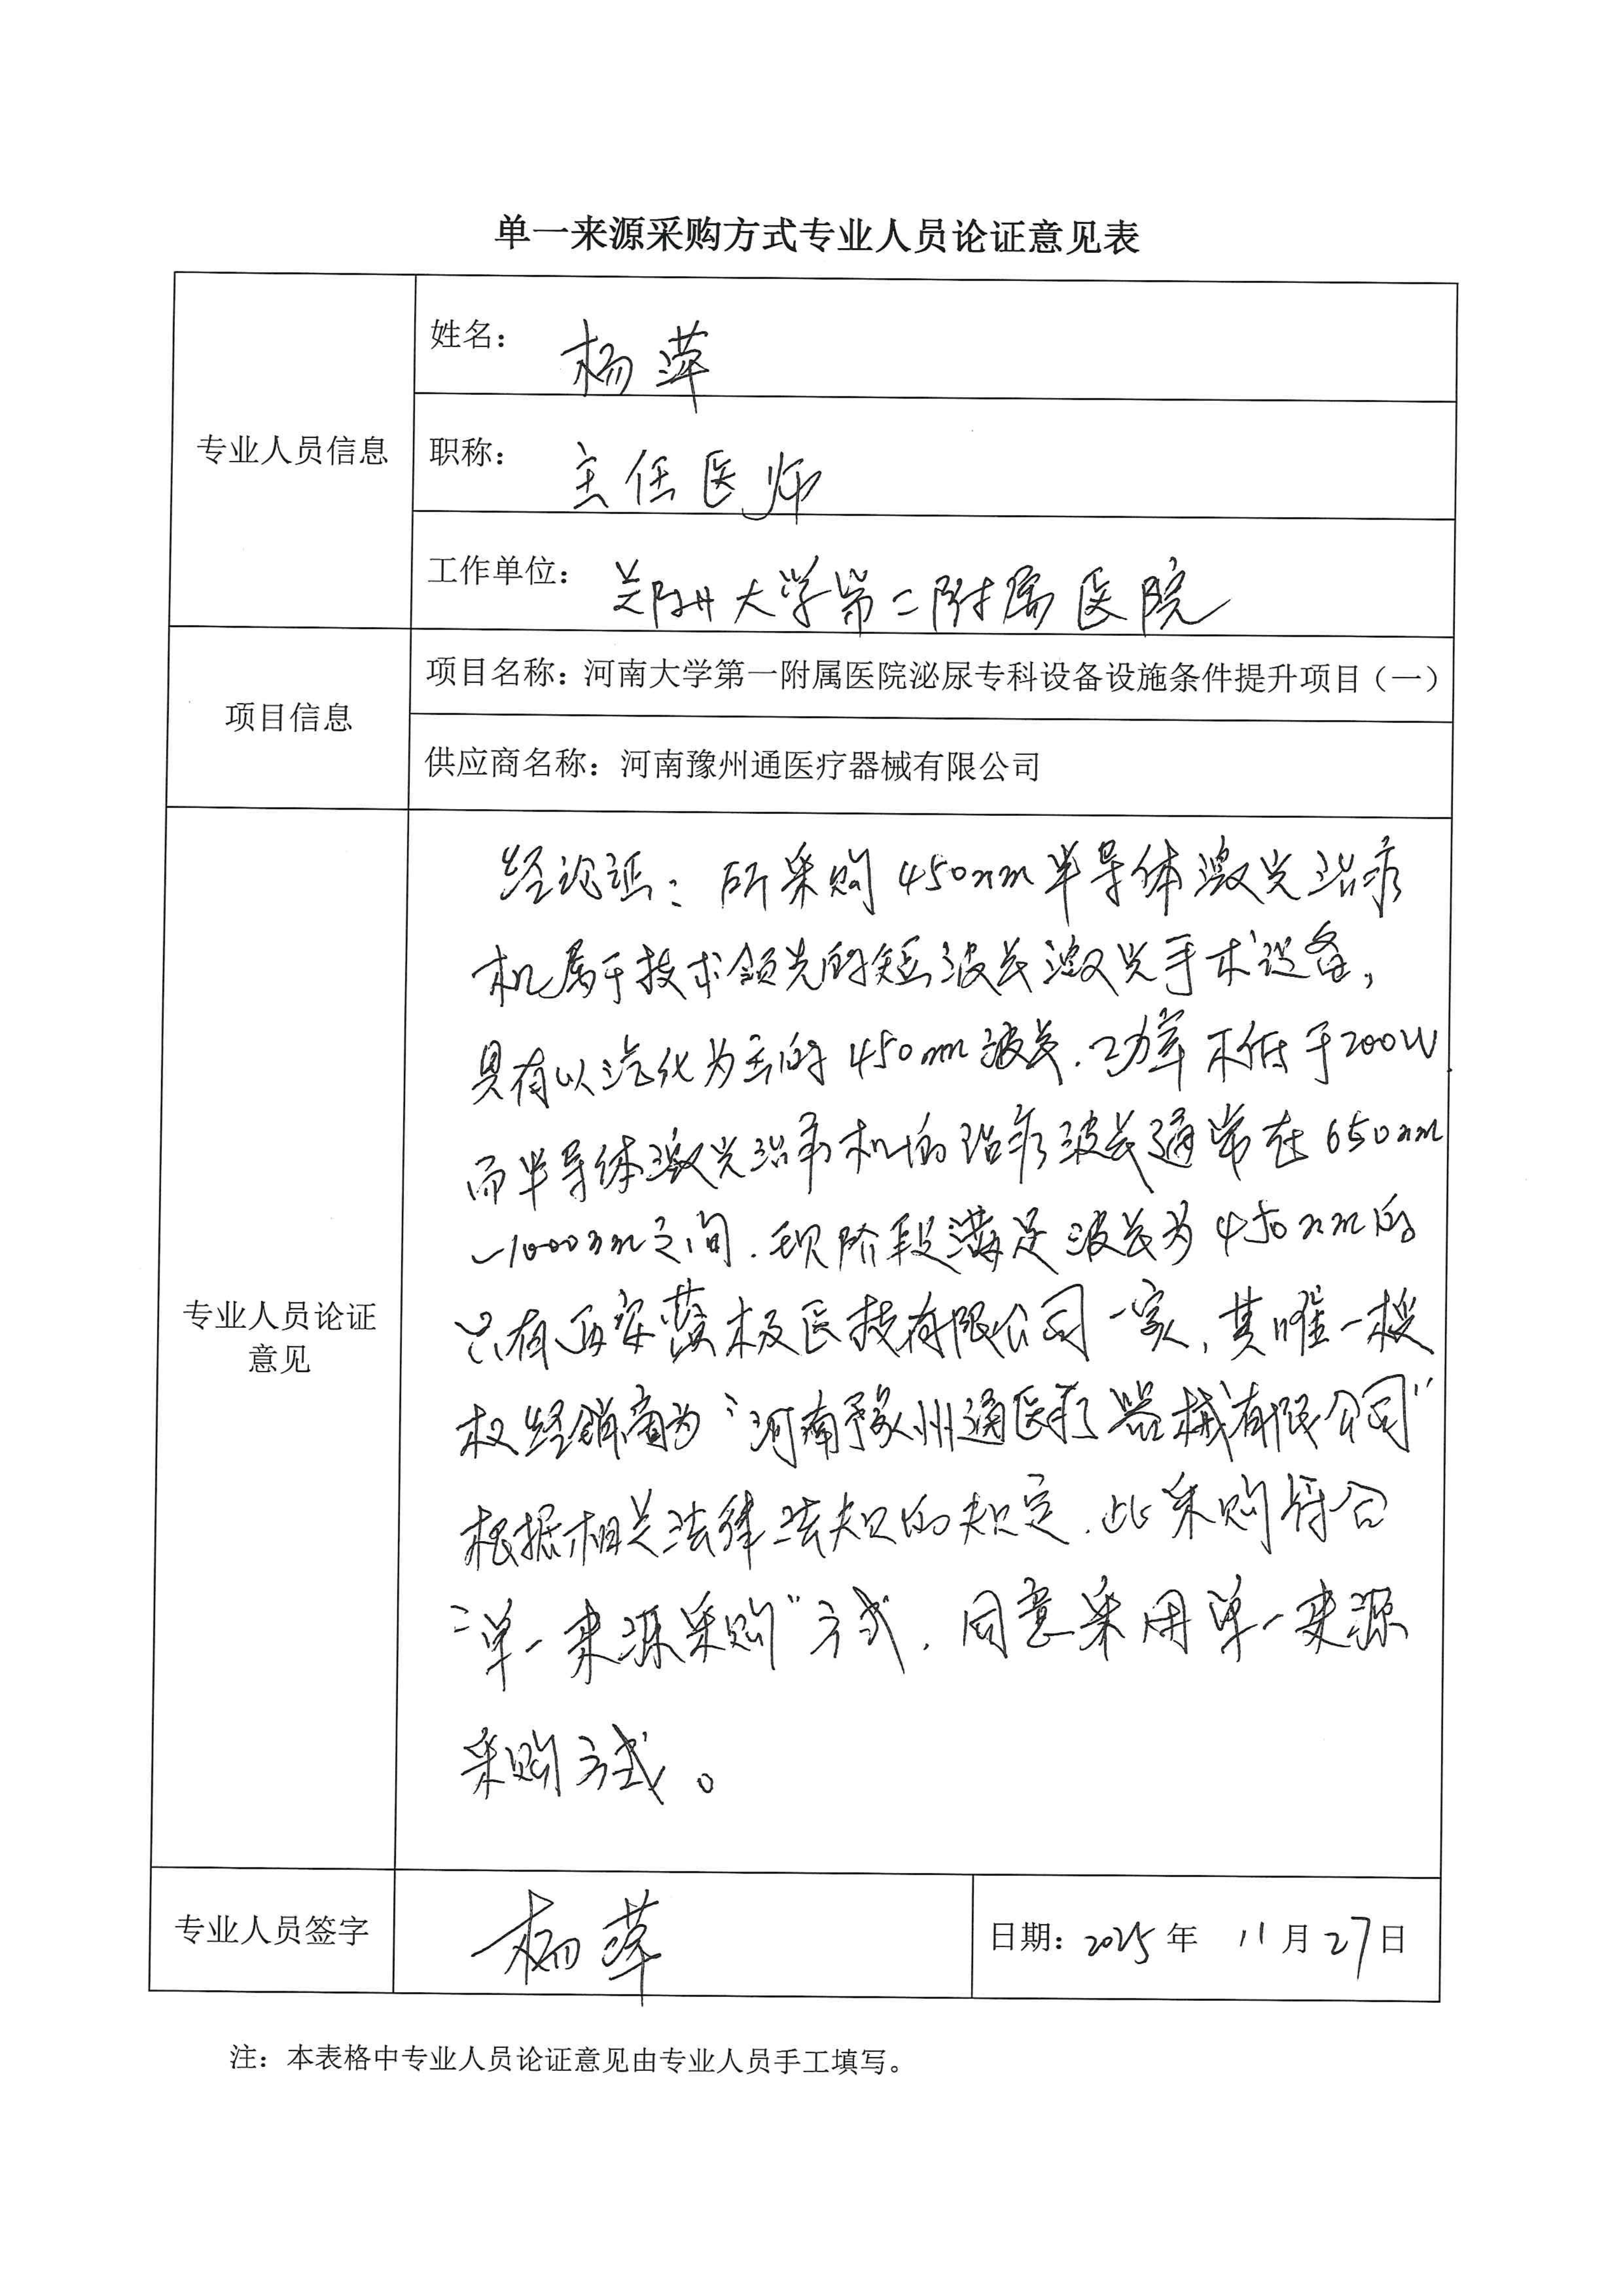 单一来源采购方式专业人员论证意见表
专业人员信息
姓名：杨萍
职称：主任医师
工作单位：郑州大学第二附属医院
项目信息
项目名称：河南大学第一附属医院泌尿专科设备设施条件提升项目（一）
供应商名称：河南豫州通医疗器械有限公司
专业人员论证
意见
经论证：所采购450nm半导体激光治疗
机属于技术领先的短波长激光手术设备，
具有以汽化为主的450nm波长.功率不低于200W
而半导体激光治疗机的治疗波长通常在650nm
~1000nm之间.现阶段满足波长为450nm的
只有西安蓝极医技有限公司一家，其唯一授
权经销商为“河南豫州通医疗器械有限公司”
根据相关法律法规的规定.此采购符合
“单一来源采购”方式.同意采用单一来源
采购方式。
专业人员签字
杨萍
日期：2025年 11月27日
注：本表格中专业人员论证意见由专业人员手工填写。